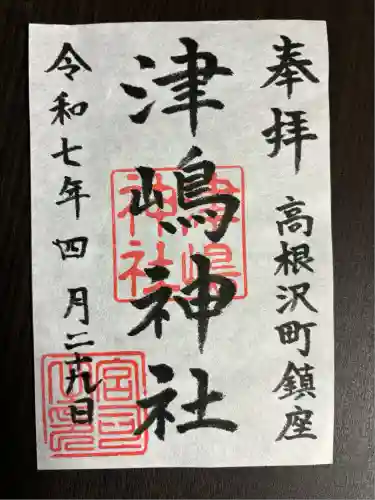 奉拝
高根沢町鎮座
津嶋神社
令和七年四月二十九日
津嶋
神社